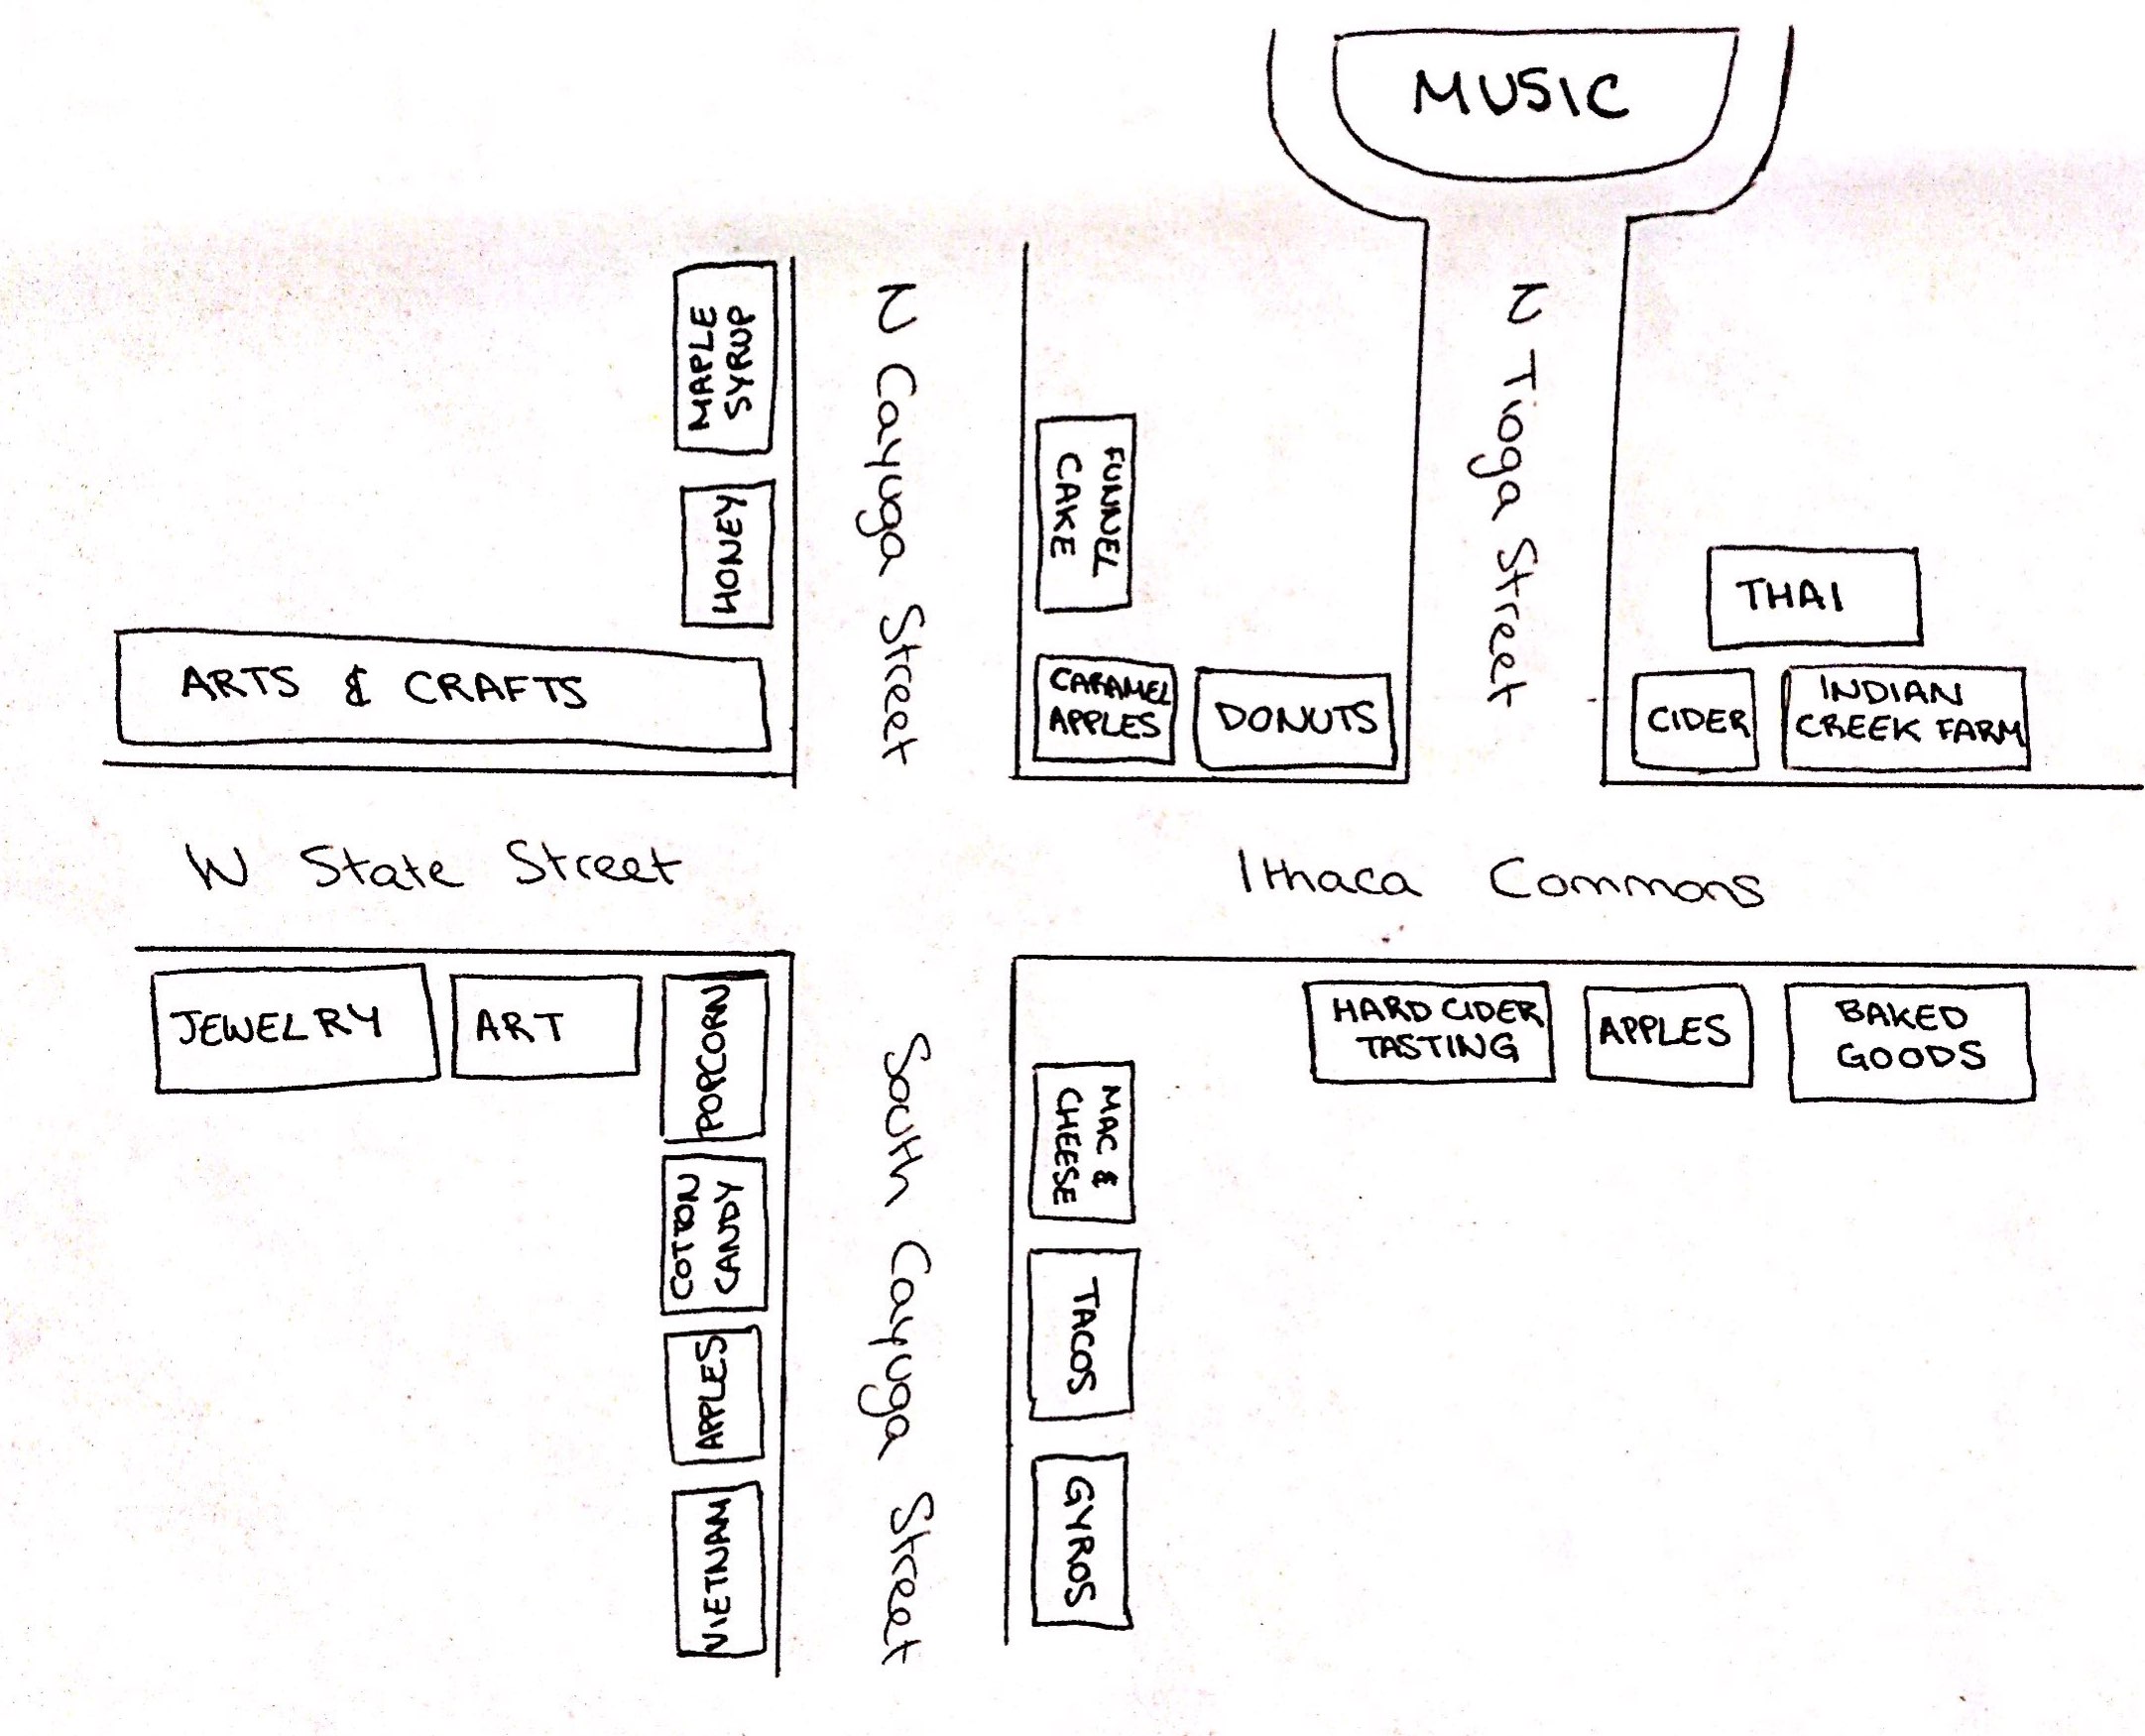 MUSIC
MAPLE
SYRUP
HONEY
ARTS & CRAFTS
N Cayuga Street
FUNNEL
CAKE
CARAMEL
APPLES
DONUTS
N Tioga Street
THAI
CIDER
INDIAN
CREEK FARM
W State Street
Ithaca Commons
JEWELRY
ART
POPCORN
COTTON
CANDY
APPLES
VIETNAM
South Cayuga Street
MAC &
CHEESE
TACOS
GYROS
HARD CIDER
TASTING
APPLES
BAKED
GOODS